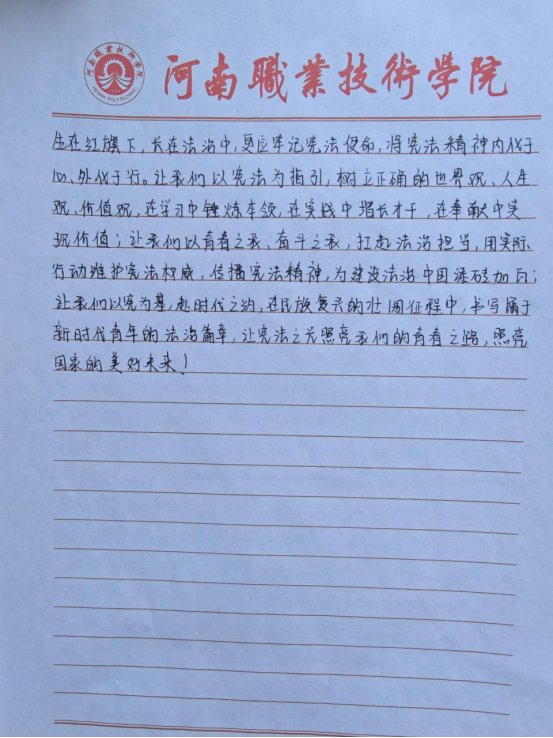 河南職業技術學院
HENAN POLYTECHNIC
生在红旗下，长在法治中，更应牢记宪法使命，将宪法精神内化于
心、外化于行。让我们以宪法为指引，树立正确的世界观、人生
观、价值观，在学习中锤炼本领，在实践中增长才干，在奉献中实
现价值；让我们以青春之我，奋斗之我，扛起法治担当，用实际
行动维护宪法权威，传播宪法精神，为建设法治中国添砖加瓦；
让我们以宪为基，赴时代之约，在民族复兴的壮阔征程中，书写属于
新时代青年的法治篇章，让宪法之光照亮我们的青春之路，照亮
国家的美好未来！